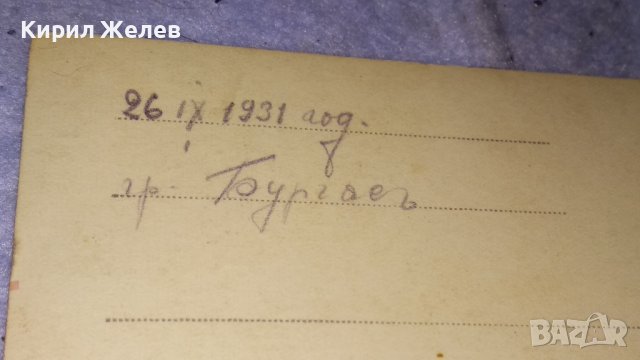 Кирил Желев
26 IX 1931 год.
гр. Бургасъ
BAZAR